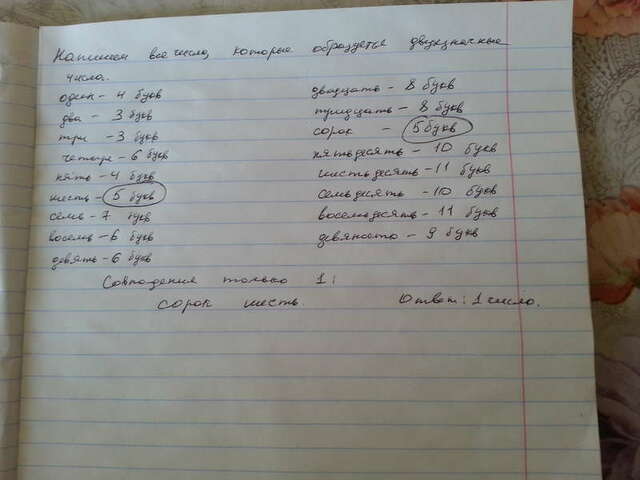 Напишем все числа, которые образуется двухзначные
числа.
один - 4 букв
два - 3 букв
три - 3 букв
четыре - 6 букв
пять - 4 букв
шесть - 5 букв
семь - 7 букв
восемь - 6 букв
девять - 6 букв
двадцать - 8 букв
тридцать - 8 букв
сорок - 5 букв
пятьдесять - 10 букв
шестьдесять - 11 букв
семьдесять - 10 букв
восемьдесять - 11 букв
девяносто - 9 букв
Совпадение только 1:
сорок шесть
Ответ: 1 число.